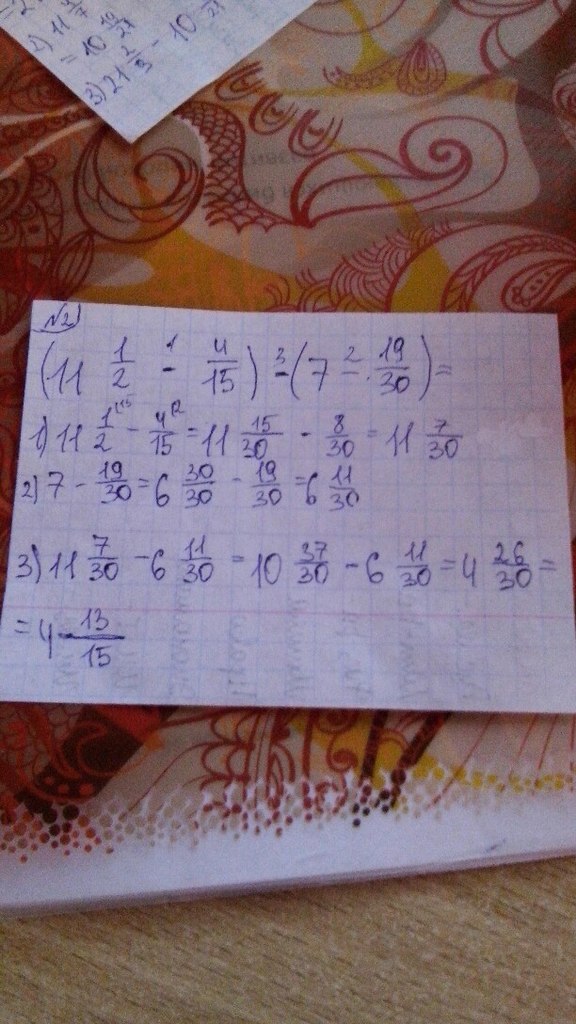 2) 11
= 10 19/21
3) 21 2/3 - 10
№2
(11 1/2 - 4/15) - (7 - 19/30) =
1) 11 1/2 - 4/15 = 11 15/30 - 8/30 = 11 7/30
2) 7 - 19/30 = 6 30/30 - 19/30 = 6 11/30
3) 11 7/30 - 6 11/30 = 10 37/30 - 6 11/30 = 4 26/30 =
= 4 13/15